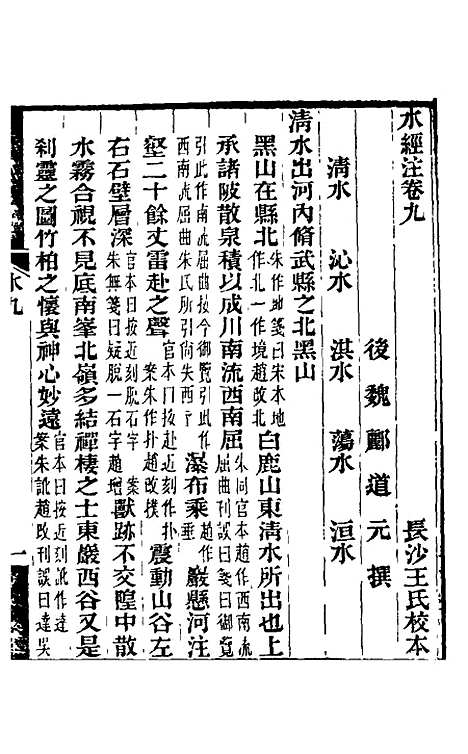 水經注卷九　長沙王氏校本
後魏酈道元撰
清水　沁水　淇水　蕩水　洹水
清水出河內脩武縣之北黑山
黑山在縣北朱作地箋曰宋本地作北一作境趙改北白鹿山東清水所出也上
承諸陂散泉積以成川南流西南屈朱同官本趙作西南流屈曲刊誤曰箋曰御覽引此作南流屈曲按今御覽引此作西南流屈曲朱氏所引尚失西字瀑布乘趙作垂巖懸河注
壑二十餘丈雷赴之聲官本曰按赴近刻作扑案朱作扑趙改撲震動山谷左
右石壁層深官本曰按近刻脫石字案朱無箋曰疑脫一石字趙增獸跡不交隍中散
水霧合視不見底南峯北嶺多結禪棲之士東巖西谷又是
剎靈之圖竹柏之懷與神心妙遠官本曰按近刻訛作達案朱訛趙改刊誤曰達吳
水九　一